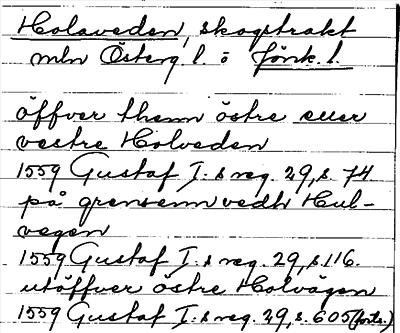 Holaveden, skogstrakt
mln Österg. l. o Jönk. l.
öffver them östre eller
vestre Holveden
1559 Gustaf I:s reg. 29, s. 74
på grensenn vedh Hul-
vegen
1559 Gustaf I:s reg. 29, s. 116.
utöffver östre Holvägen
1559 Gustaf I:s reg. 29 s. 605 (forts.)